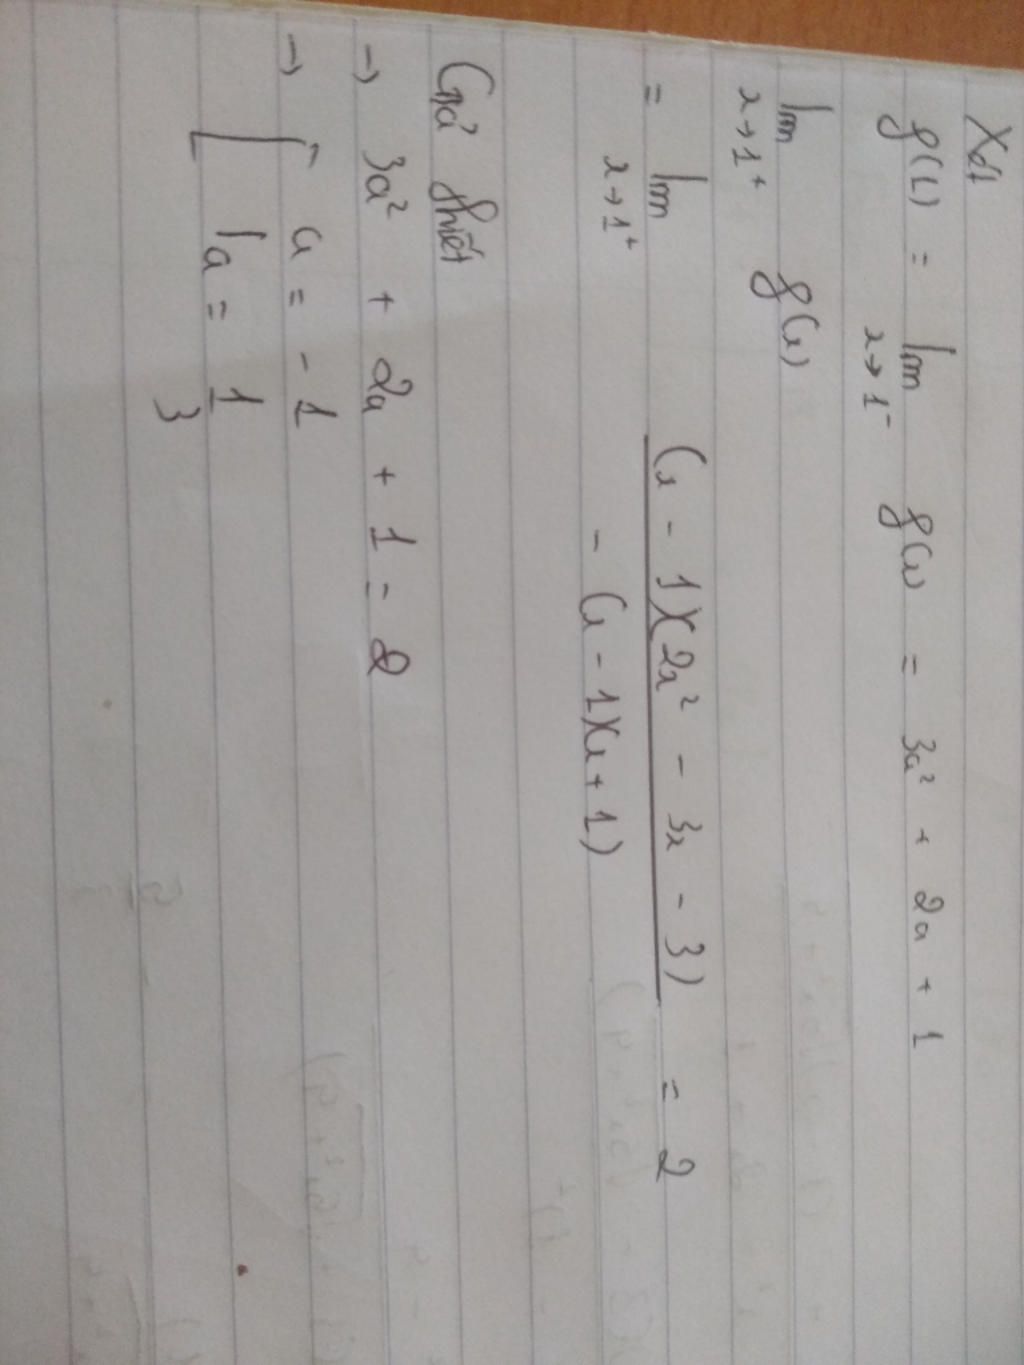 Xét
f(1) = lim x→1⁻ f(x) = 3a² + 2a + 1
lim x→1⁺ f(x)
= lim x→1⁺ (x - 1)(2x² - 3x - 3) / - (x - 1)(x + 1) = 2
Giả thiết
→ 3a² + 2a + 1 = 2
→ [ a = - 1
[ a = 1/3